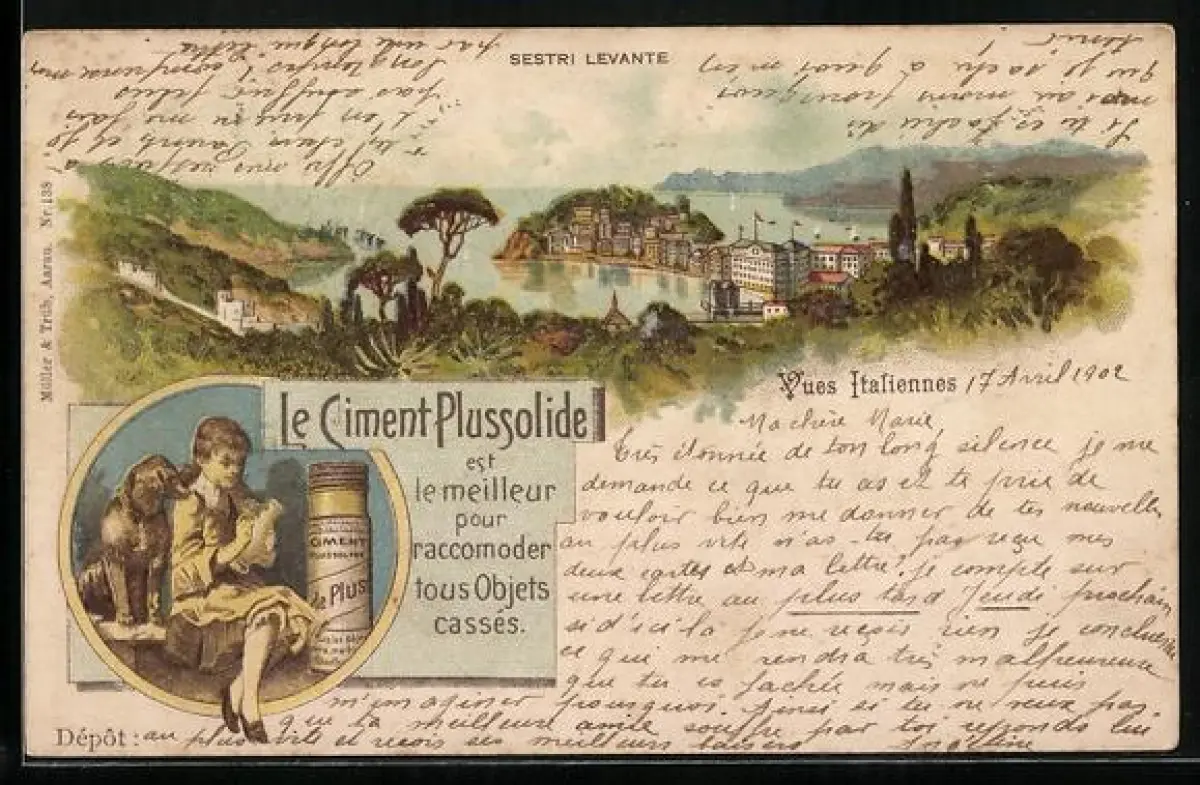 SESTRI LEVANTE
Müller & Trüb, Aarau. Nr. 138
Vues Italiennes 17 Avril 1902
Le Ciment Plussolide
est
le meilleur
pour
raccomoder
tous Objets
cassés.
CIMENT
PLUSSOLIDE
de Plus
Dépôt:
Ma chère Marie,
Très étonnée de ton long silence je me
demande ce que tu as et te prie de
vouloir bien me donner de tes nouvelles
au plus vite n'as-tu pas reçu mes
deux cartes et ma lettre. je compte sur
une lettre au plus tard Jeudi prochain
si d'ici là je ne reçois rien je
ce qui me rendra très malheureuse
que tu es fachée mais ne puis
m'imaginer pourquoi. Ainsi si tu ne veux pas
que ta meilleure amie souffre par toi reponds lui
au plus vite et reçois ses meilleurs baisers
Si tu es fachée dis
moi au moins pourquoi
que je sache à quoi m'en
tenir
par une longue lettre